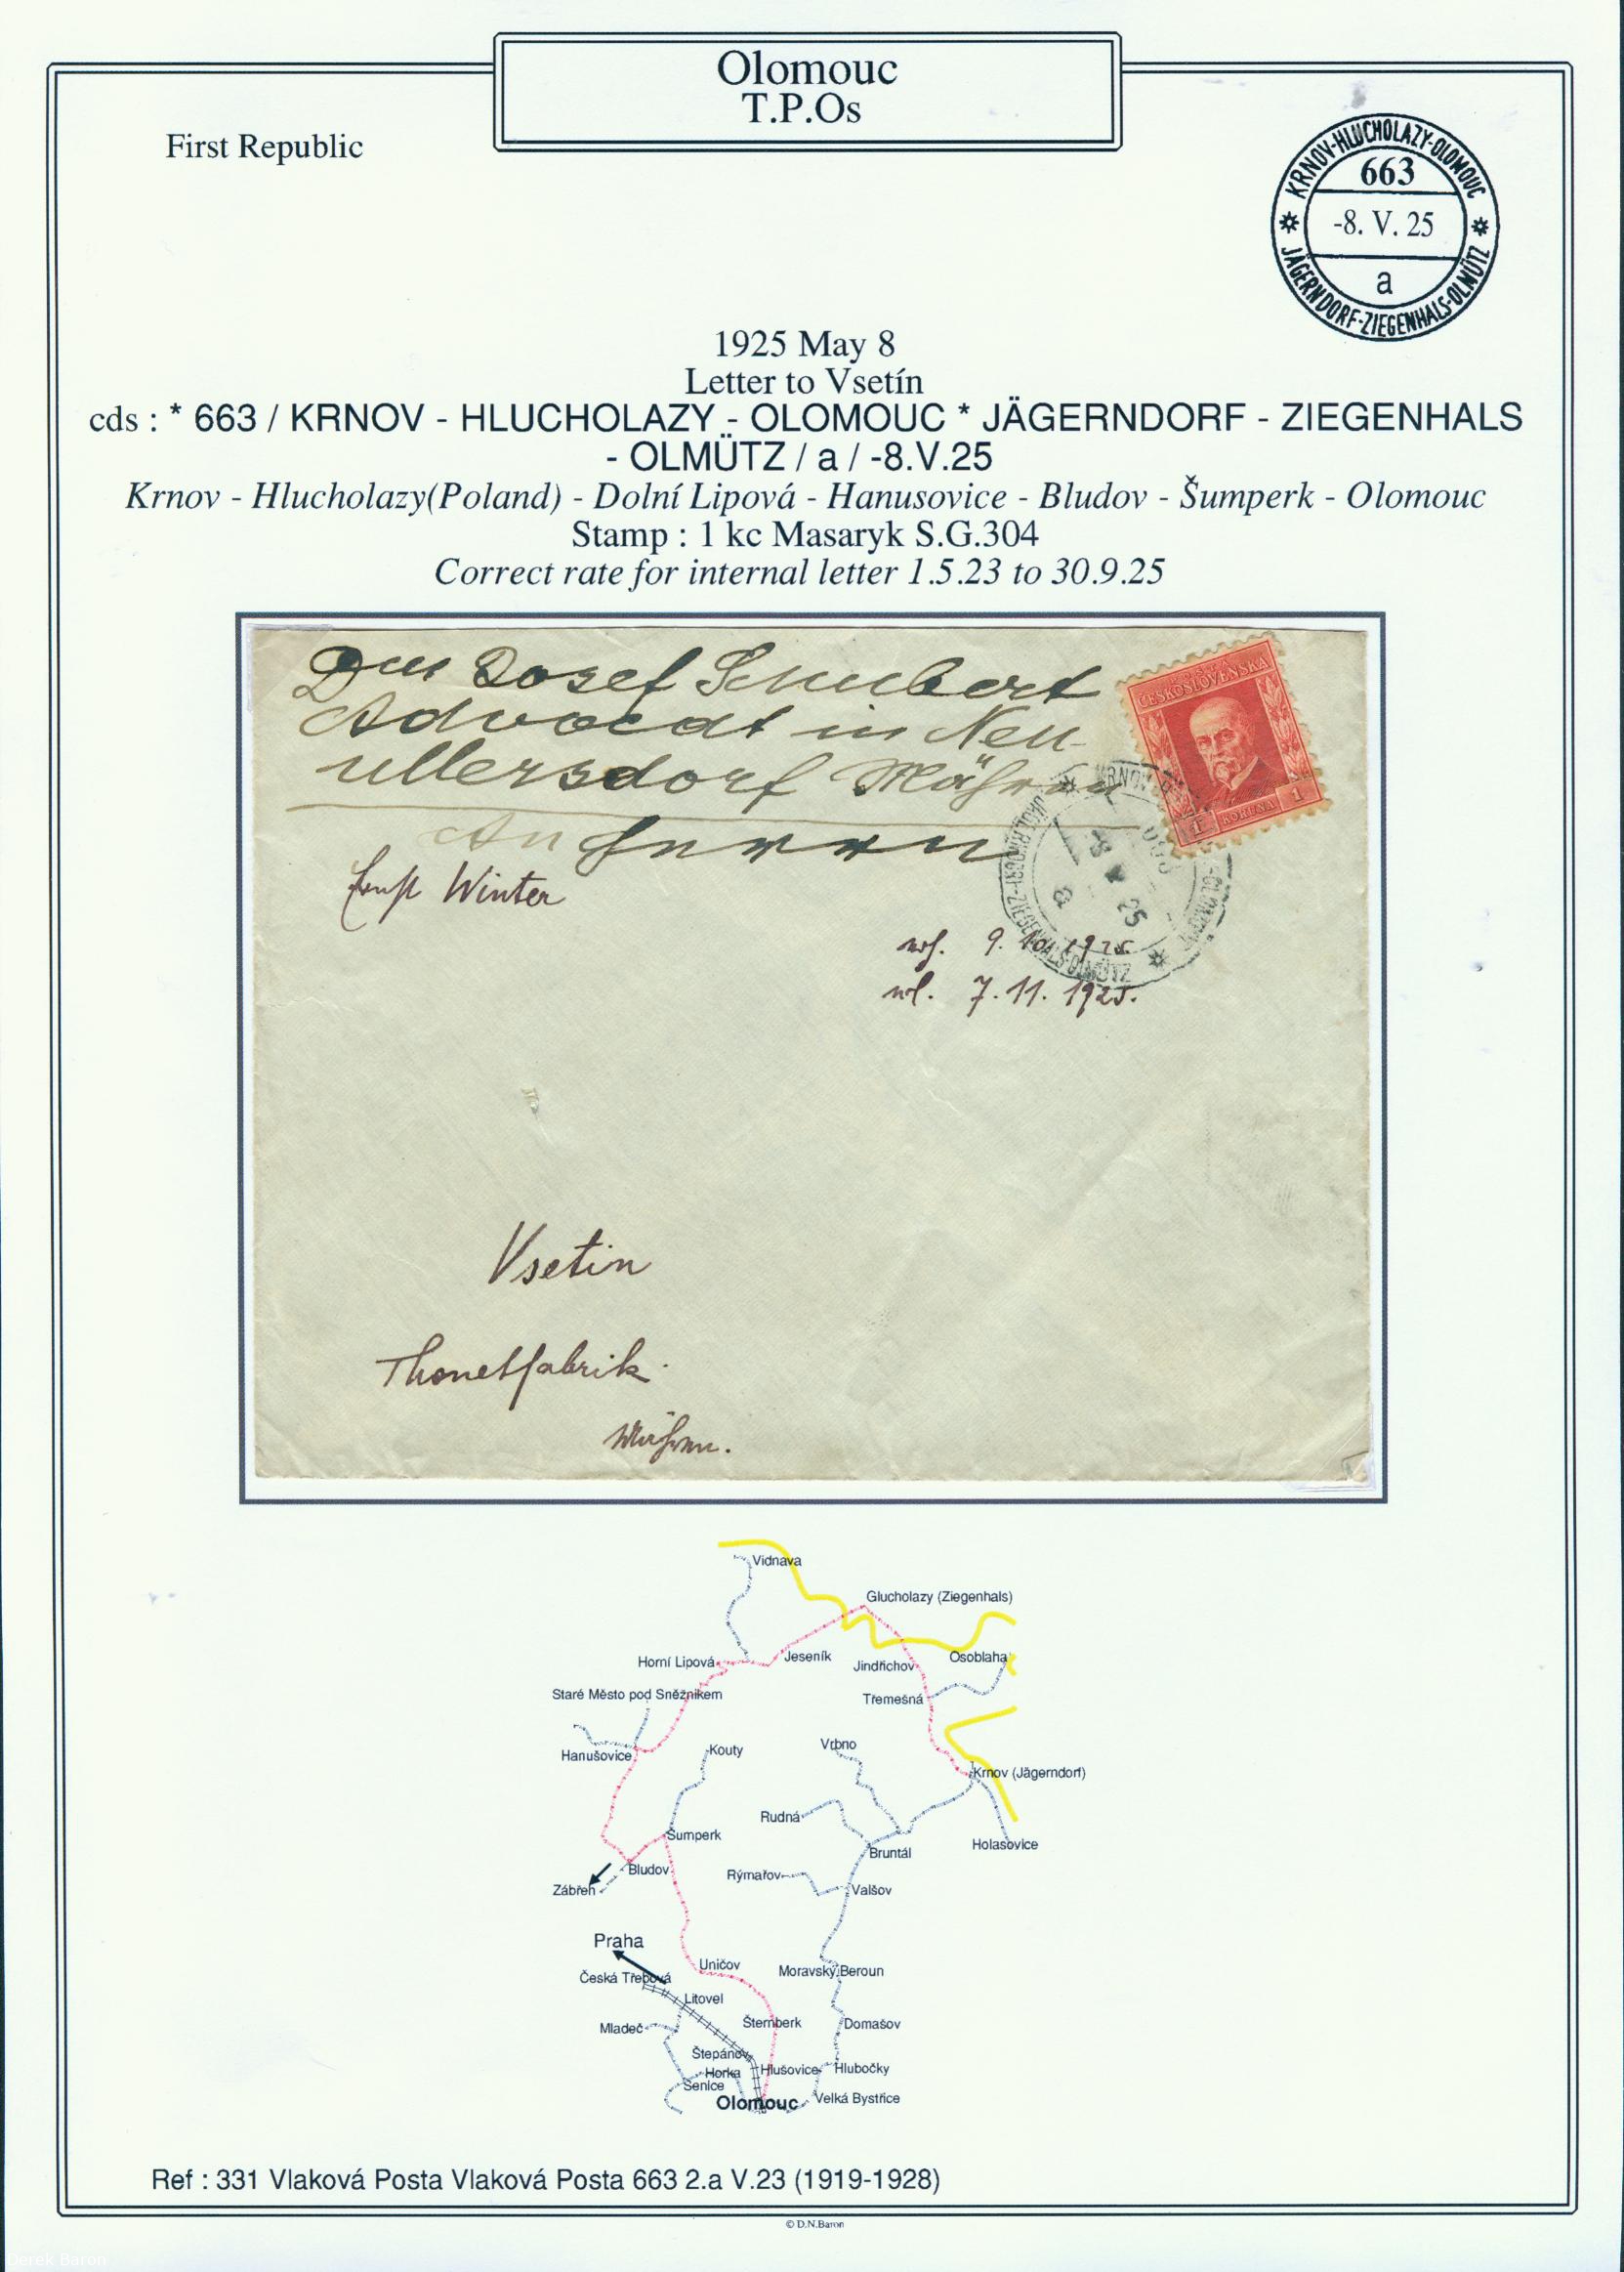 Olomouc
T.P.Os
First Republic
KRNOV-HLUCHOLAZY-OLOMOUC
663
-8. V. 25
a
JÄGERNDORF-ZIEGENHALS-OLMÜTZ
1925 May 8
Letter to Vsetín
cds : * 663 / KRNOV - HLUCHOLAZY - OLOMOUC * JÄGERNDORF - ZIEGENHALS
- OLMÜTZ / a / -8.V.25
Krnov - Hlucholazy(Poland) - Dolní Lipová - Hanusovice - Bludov - Šumperk - Olomouc
Stamp : 1 kc Masaryk S.G.304
Correct rate for internal letter 1.5.23 to 30.9.25
Josef Schubert
Advocat in Neu-
ullersdorf Mähren
An Herrn
ČESKOSLOVENSKÁ
1 KORUNA 1
Ernst Winter
9. 10. 1925
7. 11. 1925.
Vsetin
Thonetfabrik.
Mähren.
Vidnava
Glucholazy (Ziegenhals)
Horní Lipová
Jeseník
Jindřichov
Osoblaha
Staré Město pod Sněžnikem
Třemešná
Hanušovice
Kouty
Vrbno
Krnov (Jägerndorf)
Rudná
Šumperk
Holasovice
Bruntál
Bludov
Rýmařov
Zábřeh
Valšov
Praha
Uničov
Moravský Beroun
Česká Třebová
Litovel
Mladeč
Šternberk
Domašov
Štepánov
Horka
Hlušovice
Hlubočky
Senice
Olomouc
Velká Bystřice
Ref : 331 Vlaková Posta Vlaková Posta 663 2.a V.23 (1919-1928)
© D.N.Baron
Derek Baron